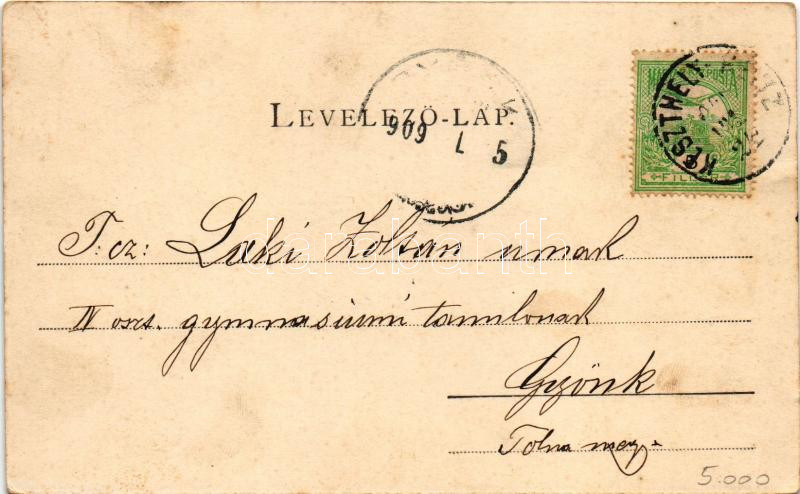 LEVELEZŐ-LAP.
909 7 5
KESZTHELY
FILLÉR
T: cz: Laki Zoltan urnak
IV oszt. gymnasiumi tanulonak
Gyönk
Tolna meg.
darabanth
5.000